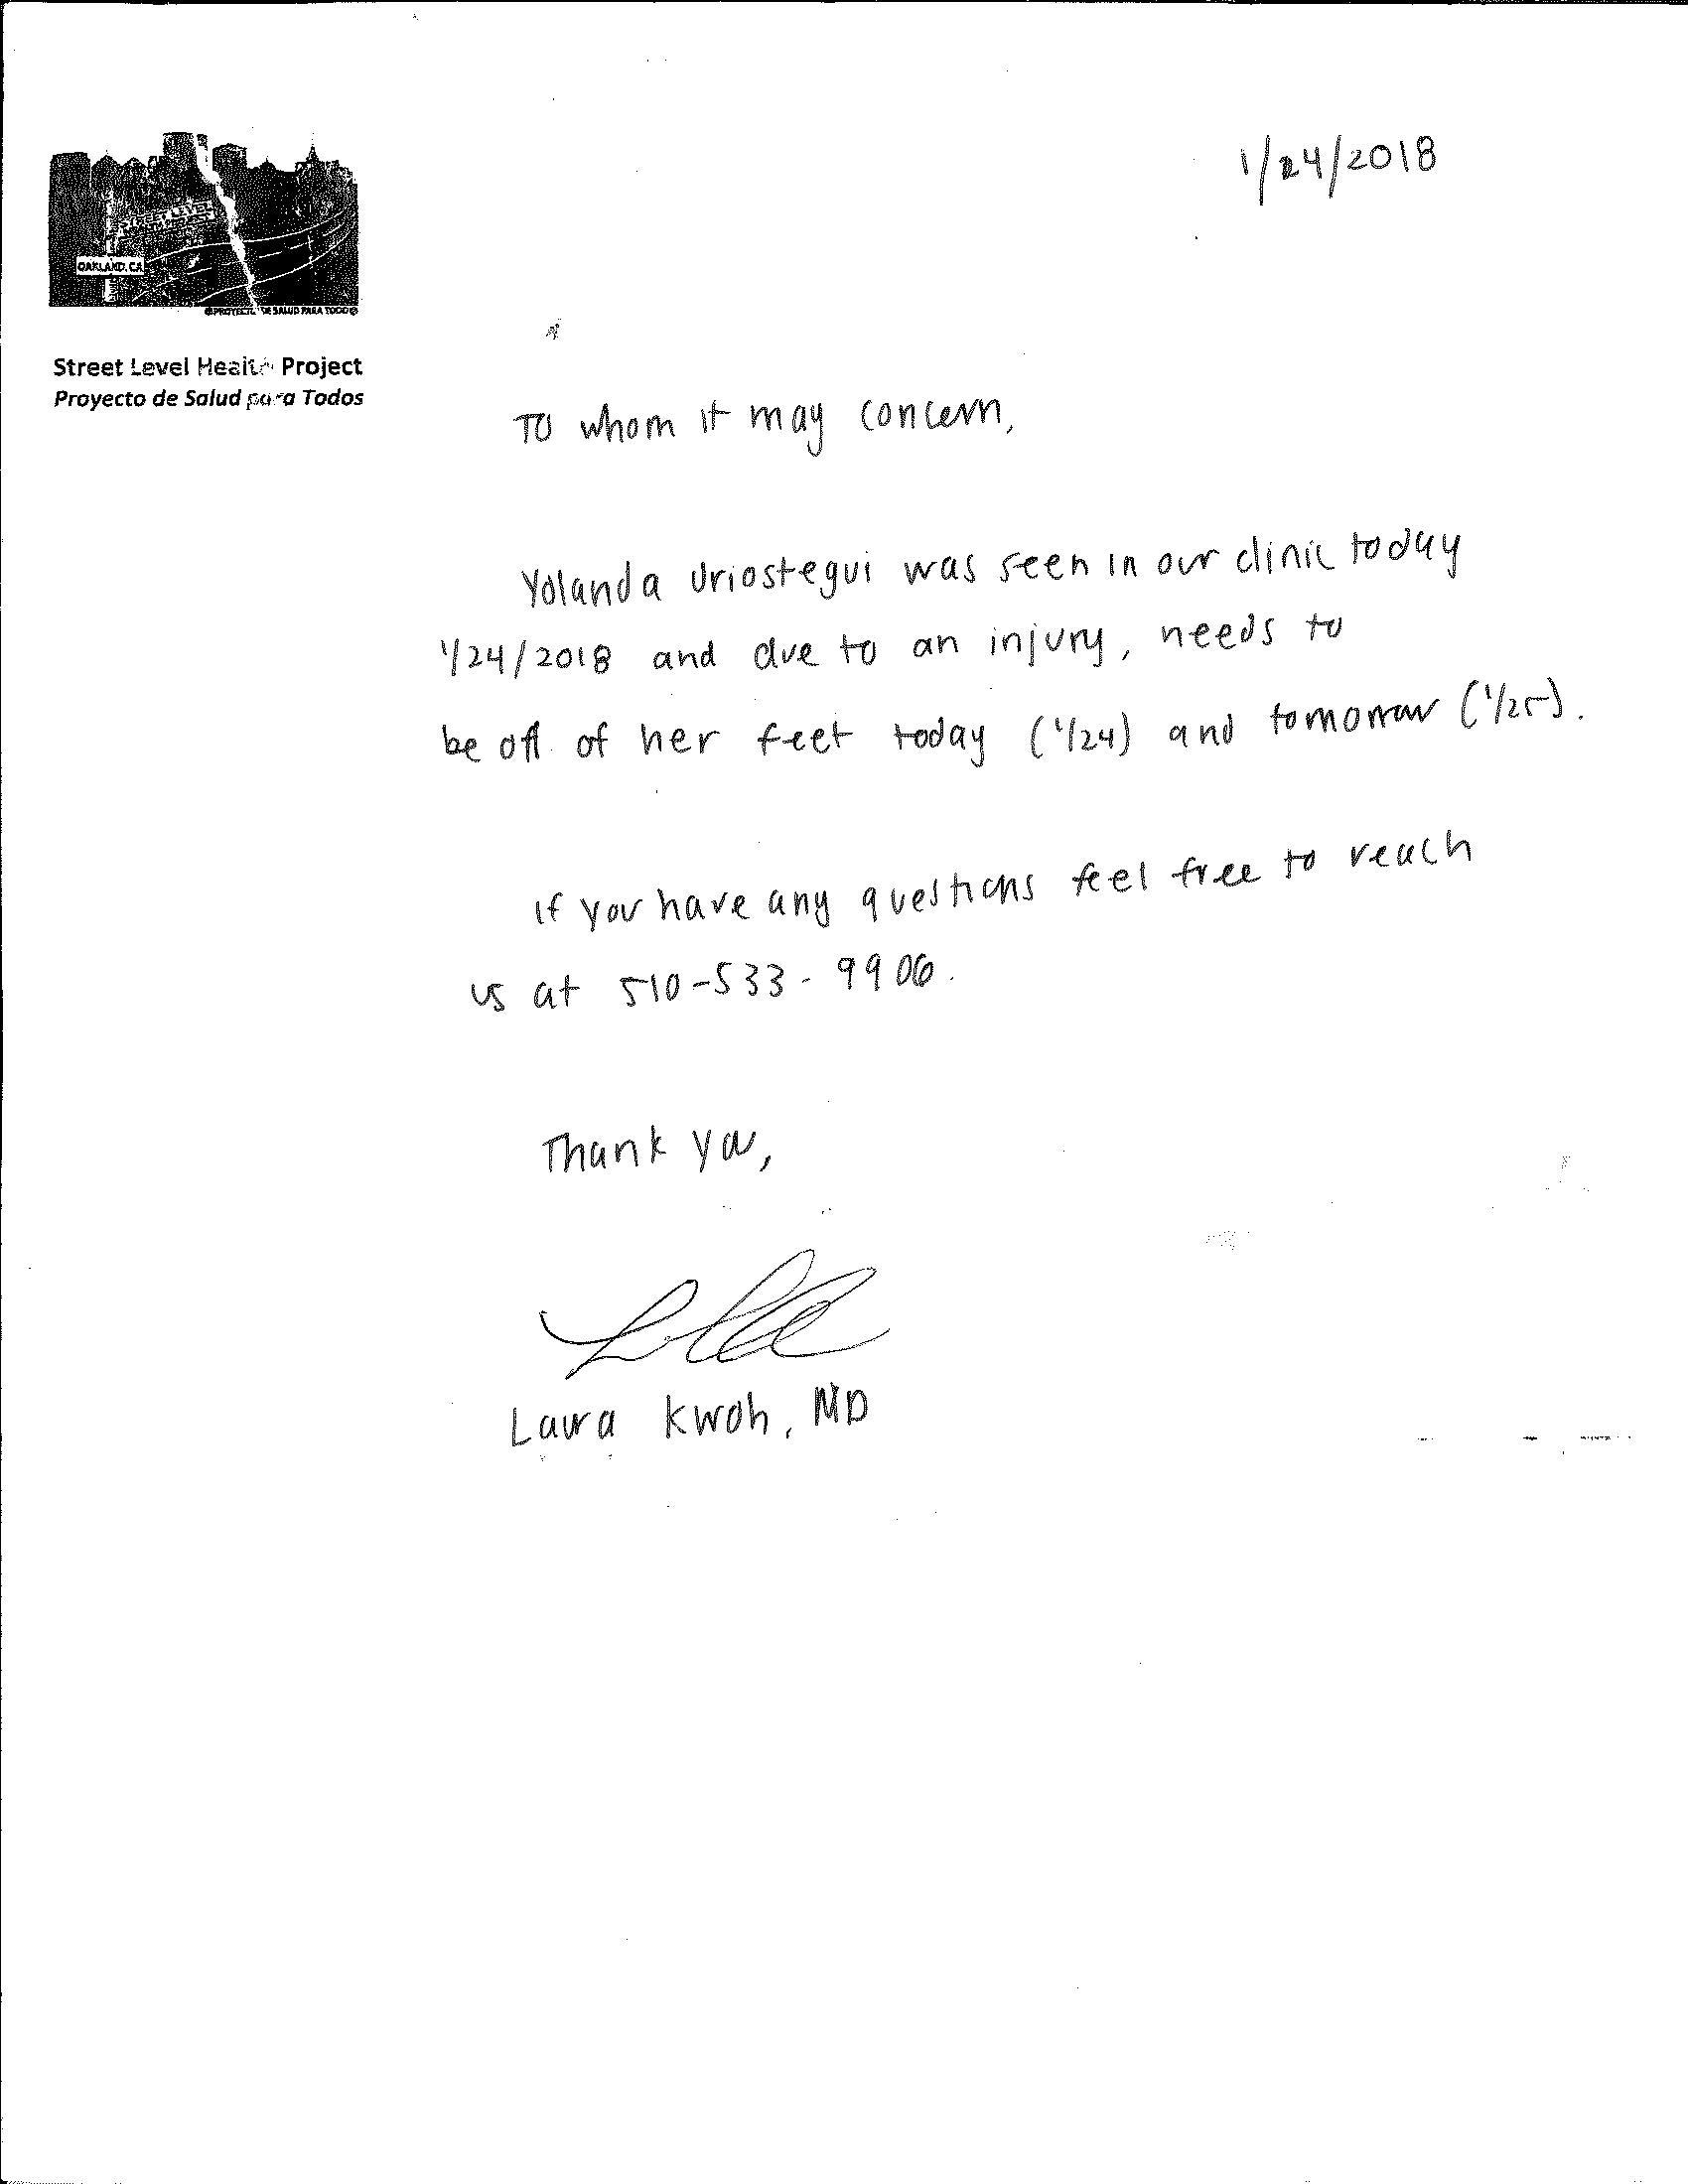 1/24/2018
STREET LEVEL
HEALTH PROJECT
OAKLAND, CA
PROYECTO DE SALUD PARA TODOS
Street Level Health Project
Proyecto de Salud para Todos
To whom it may concern,
Yolanda Uriostegui was seen in our clinic today
1/24/2018 and due to an injury, needs to
be off of her feet today (1/24) and tomorrow (1/25).
If you have any questions feel free to reach
us at 510-533-9906.
Thank you,
Laura Kwoh, MD